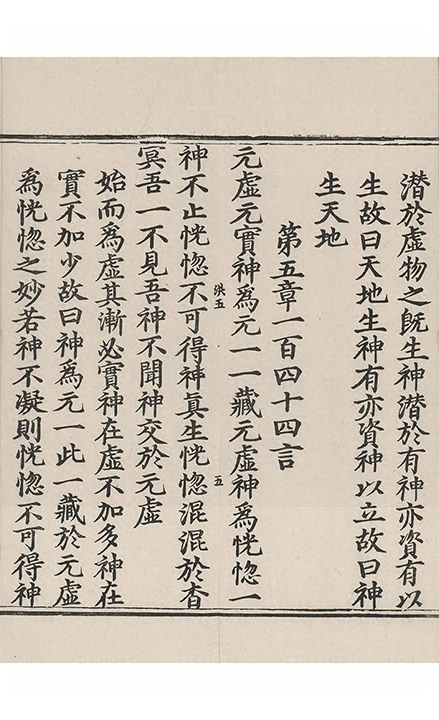 潜於虛物之旣生神潜於有神亦資有以
生故曰天地生神有亦資神以立故曰神
生天地
第五章一百四十四言
元虛元實神爲元一一藏元虛神爲恍惚一
洪五 五
神不止恍惚不可得神眞生恍惚混混於杳
冥吾一不見吾神不聞神交於元虛
始而爲虛其漸必實神在虛不加多神在
實不加少故曰神爲元一此一藏於元虛
爲恍惚之妙若神不凝則恍惚不可得神